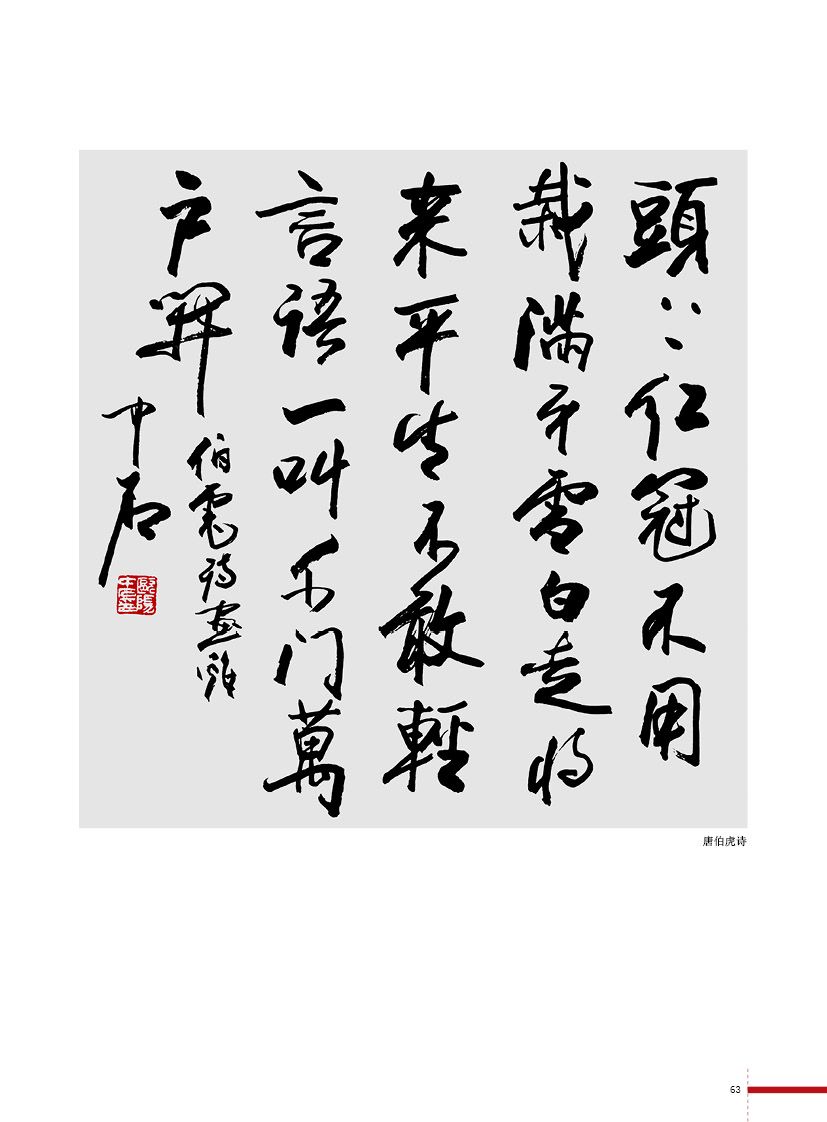 頭上红冠不用
裁满身雪白走将
来平生不敢輕
言语一叫千门萬
户開
伯虎诗画雞
中石
歐陽中石
唐伯虎诗
63